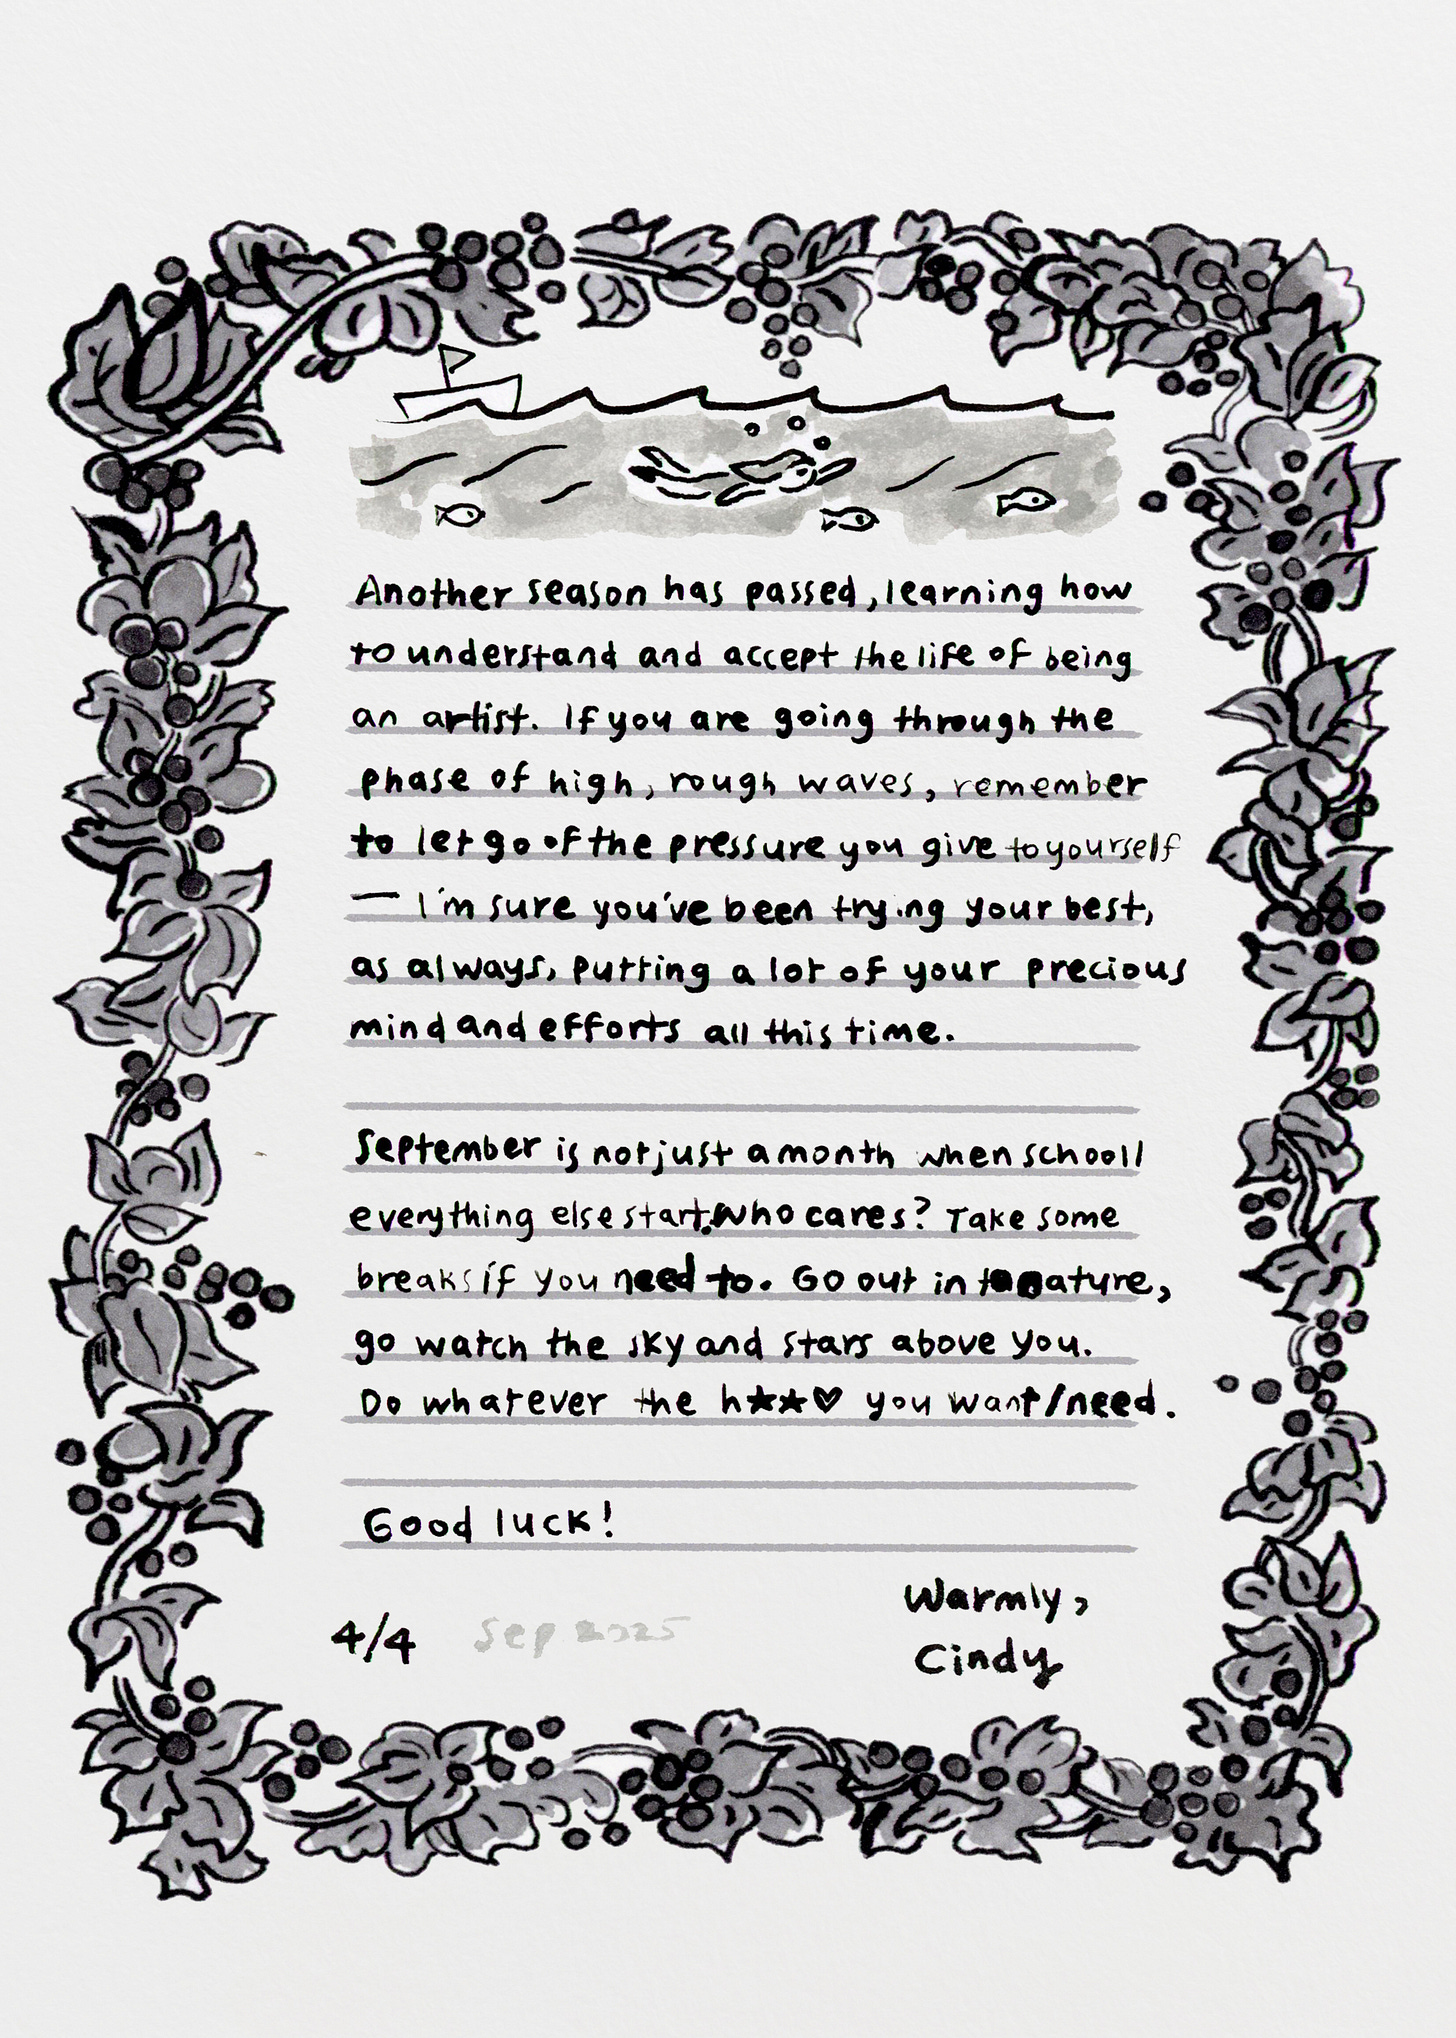 Another season has passed, learning how
to understand and accept the life of being
an artist. If you are going through the
phase of high, rough waves, remember
to let go of the pressure you give to yourself
— I'm sure you've been trying your best,
as always, putting a lot of your precious
mind and efforts all this time.
September is not just a month when school/
everything else start. Who cares? Take some
breaks if you need to. Go out in to nature,
go watch the sky and stars above you.
Do whatever the h★★♡ you want/need.
Good luck!
Warmly,
Cindy
4/4 Sep 2025